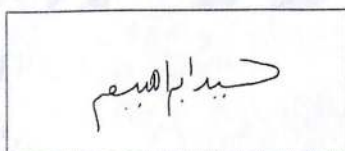 سيد ابراهيم